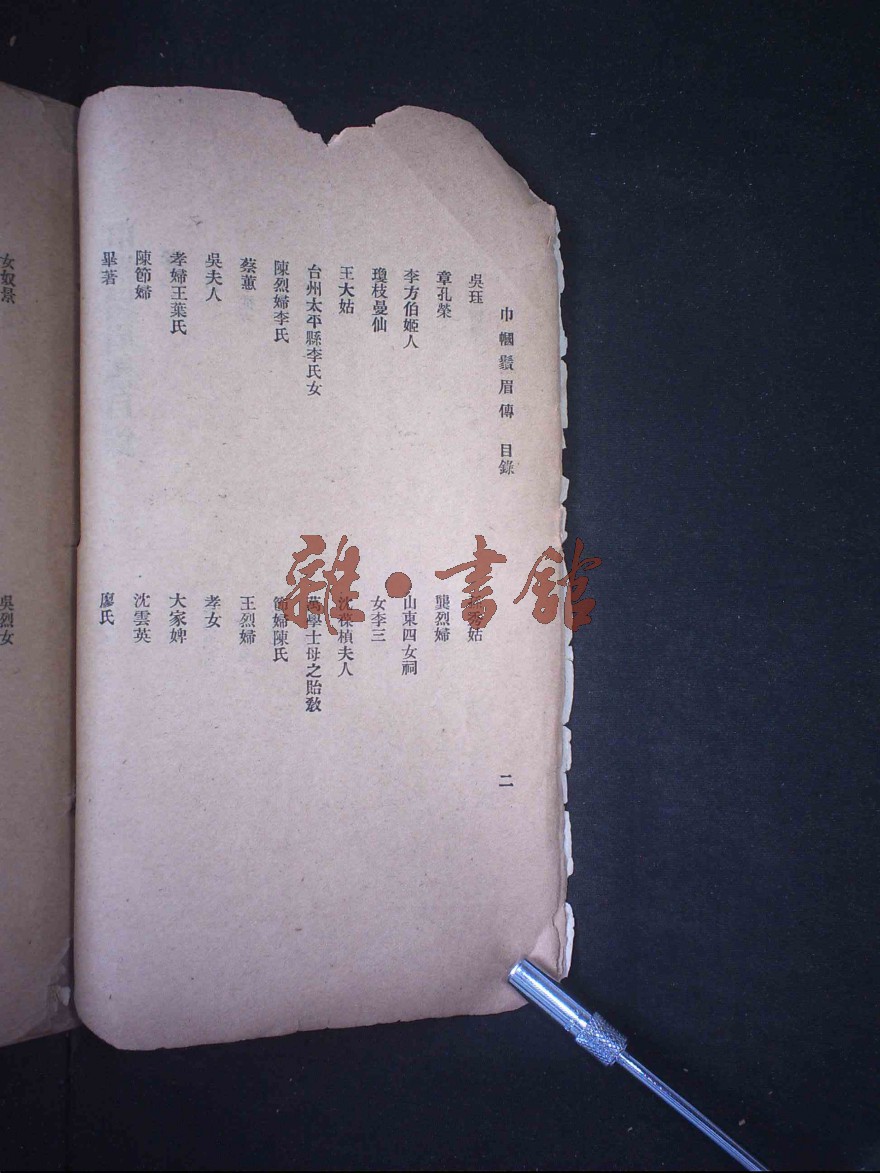 巾幗鬚眉傳 目錄 二
吳玨
秀姑
章孔榮
龔烈婦
李方伯姬人
山東四女祠
瓊枝曼仙
女李三
王大姑
沈葆楨夫人
台州太平縣李氏女
萬學士母之胎教
陳烈婦李氏
節婦陳氏
蔡蕙
王烈婦
吳夫人
孝女
孝婦王葉氏
大家婢
陳節婦
沈雲英
畢著
廖氏
女奴景
吳烈女
雜·書館